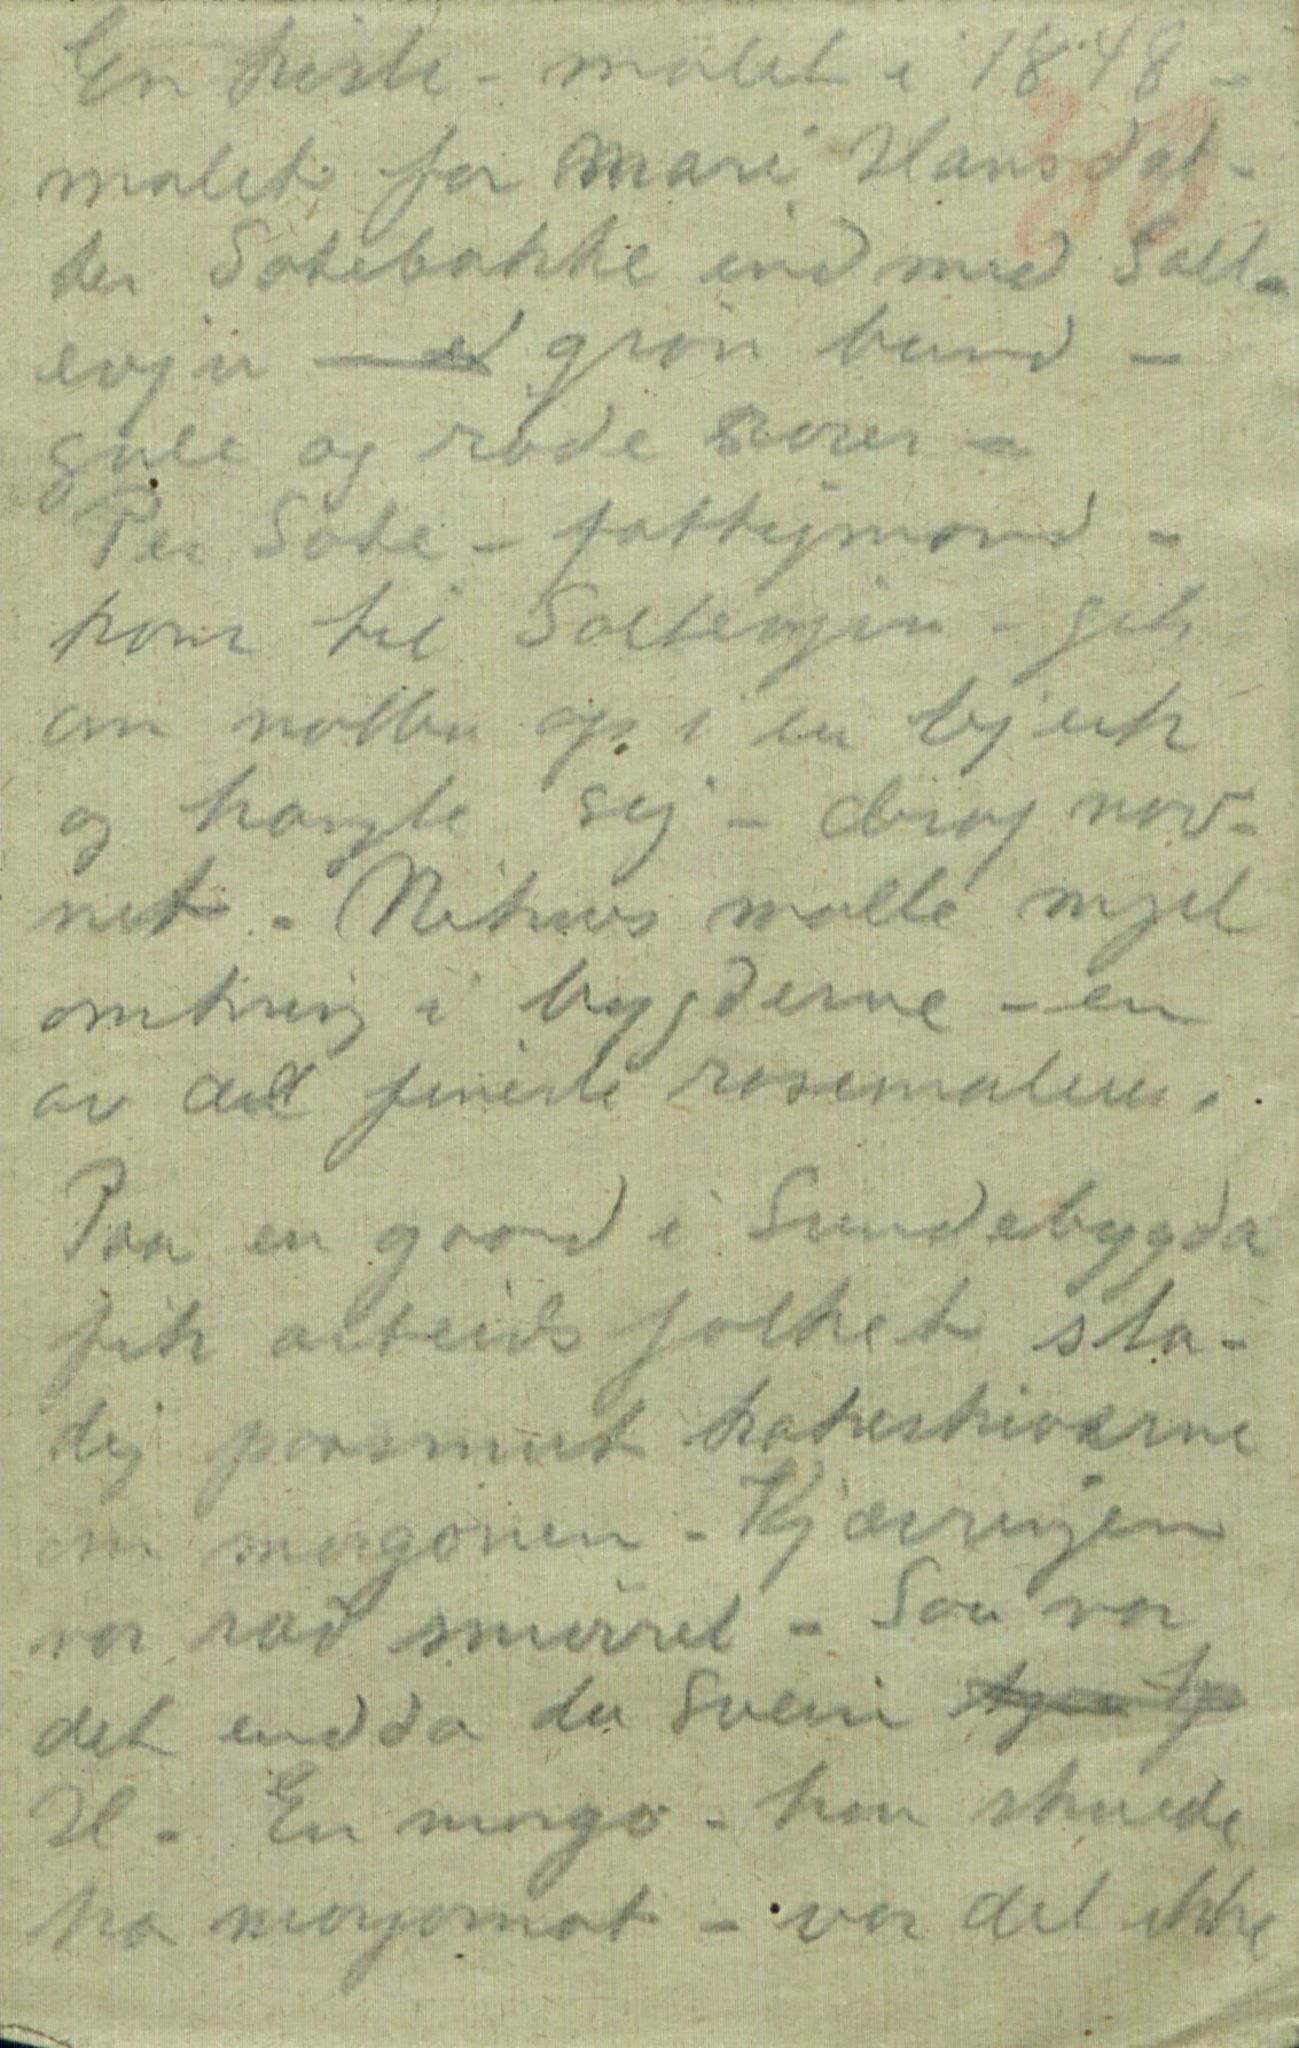 En kiste - malet i 1848 -
malet for Mari Hansdat-
ter Sotebakke ind med Solt-
evjin - grøn bund -
gule og røde roser -
Per Sote - fattigmand -
kom til Soltevjin - gik
om natten op i en bjerk
og hængte sig - drog nav-
net. malte mjel
omkring i bygderne - en
av de fineste rosemalere.
Paa en gaard i Sundebygda
fik arbeidsfolket sta-
dig paasmurt kakeskiverne
om morgonen - Kjærringen
var ræd smørret - Saa var
det endda du Svein
H - En morgo - han skulde
ha morgomat - var det ikke